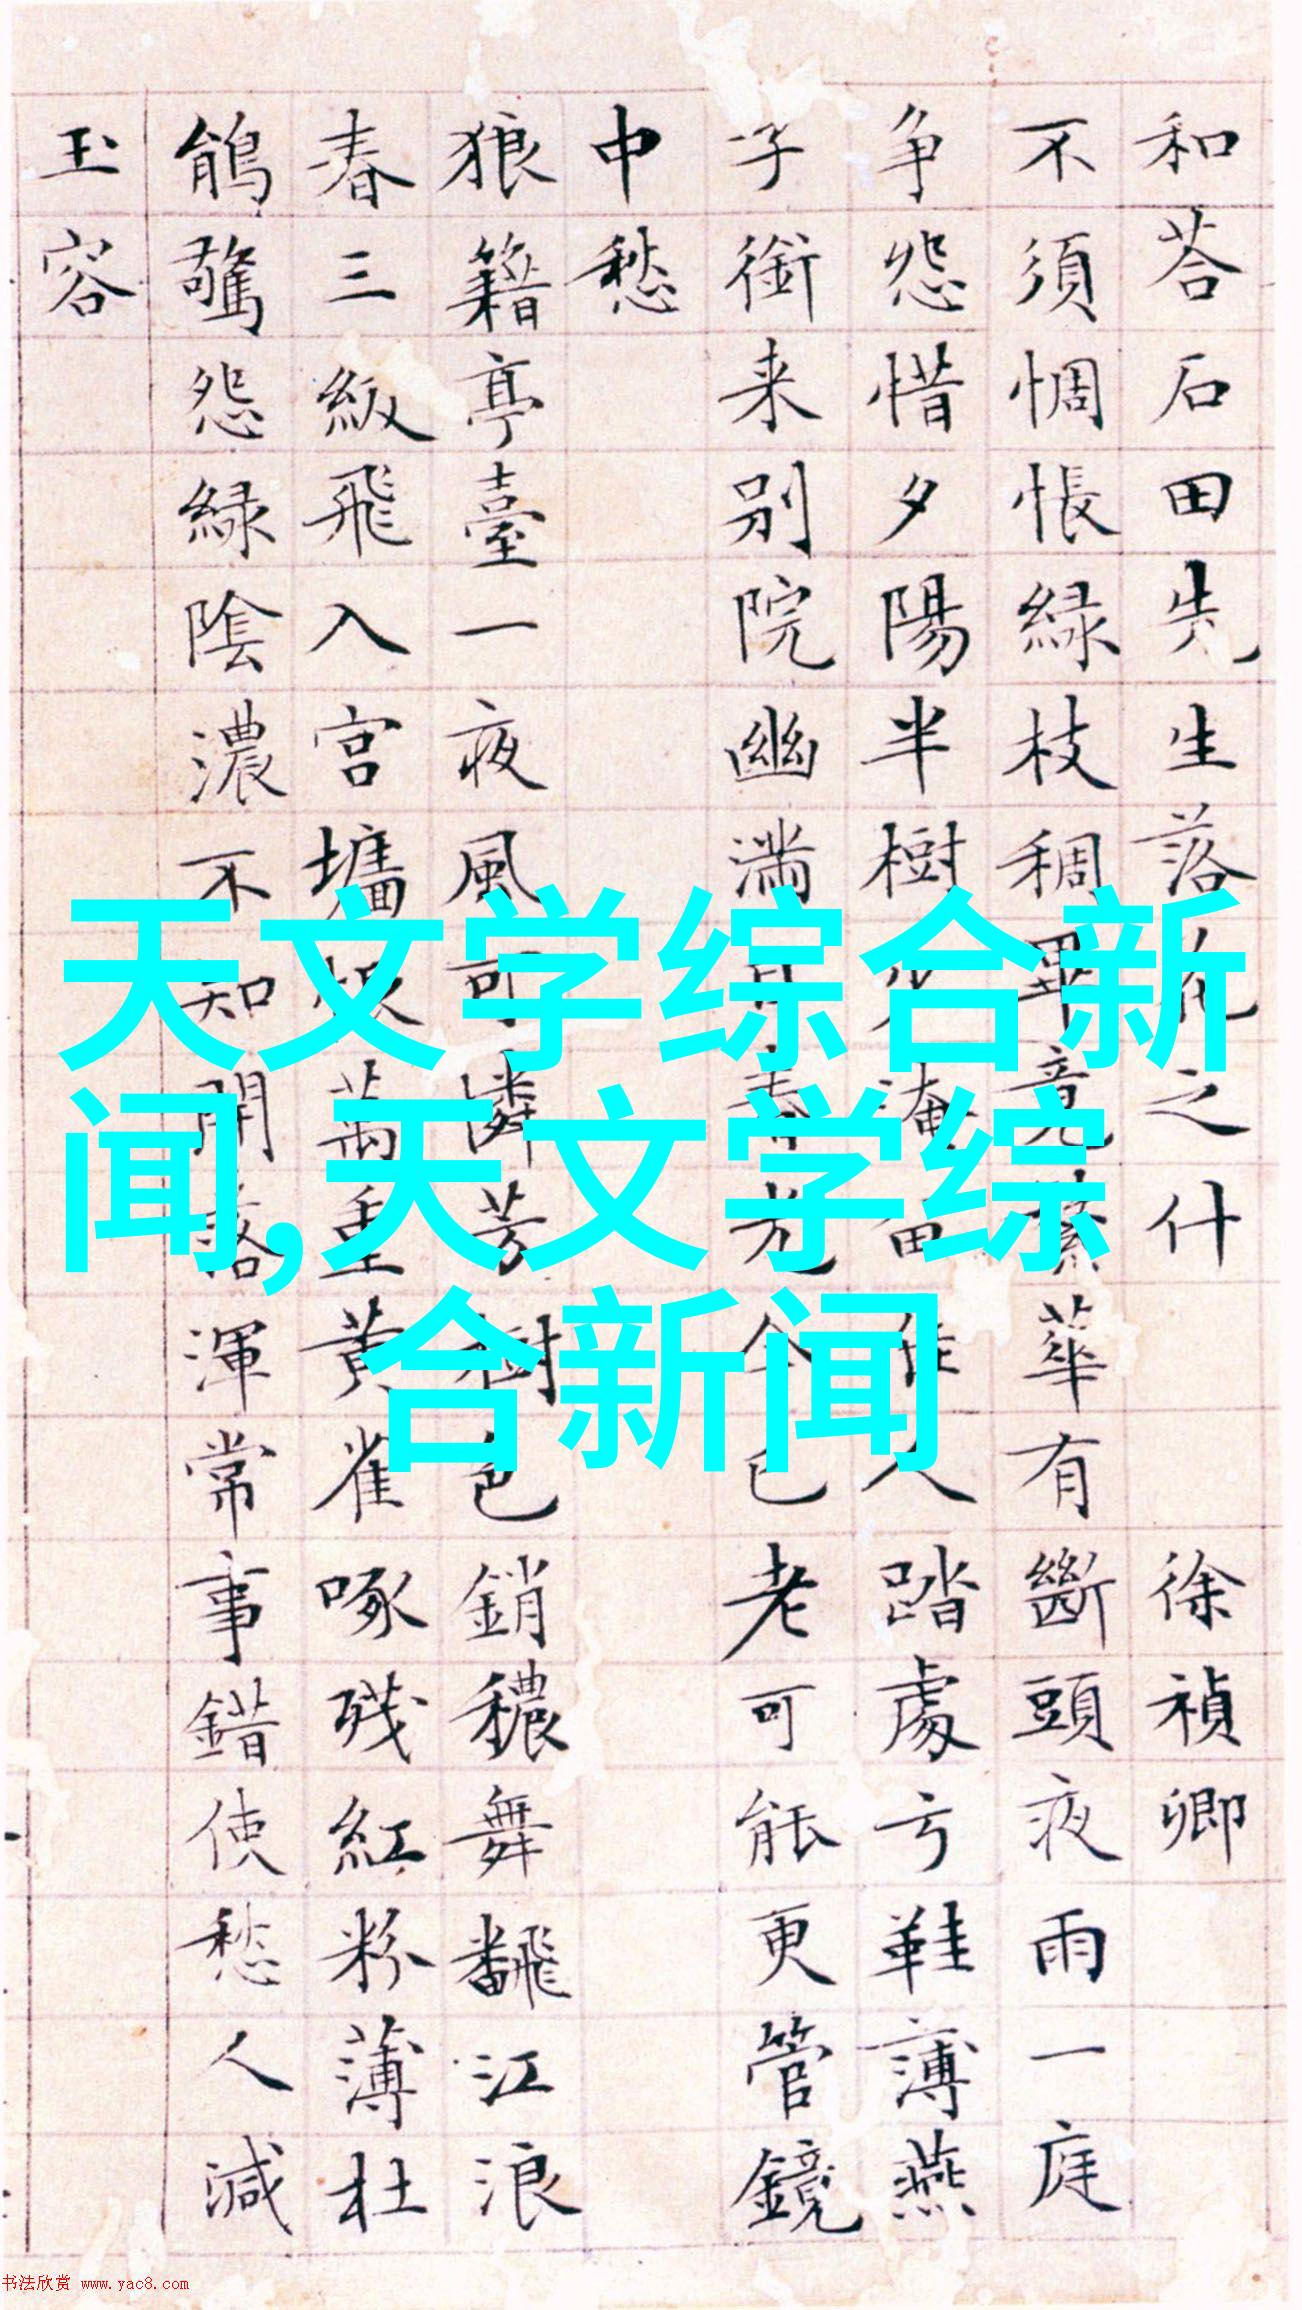 和荅石田先生落花之什 徐禎卿
不須惆悵綠枝稠畢竟繁華有斷頭夜雨一庭
争怨惜夕陽半樹少淹留佳人踏處亏鞋薄燕
子銜来別院幽滿光今已老可能更管鏡
中愁
狼籍亭臺一夜風可憐芳樹色銷穠舞飜江浪
春三級飛入宮墻恨萬重黃雀啄殘紅粉薄杜
鵑驚怨綠陰濃不知開落渾常事錯使愁人減
玉容
天文学综合新
闻,天文学综
合新闻
书法欣赏 www.yac8.com